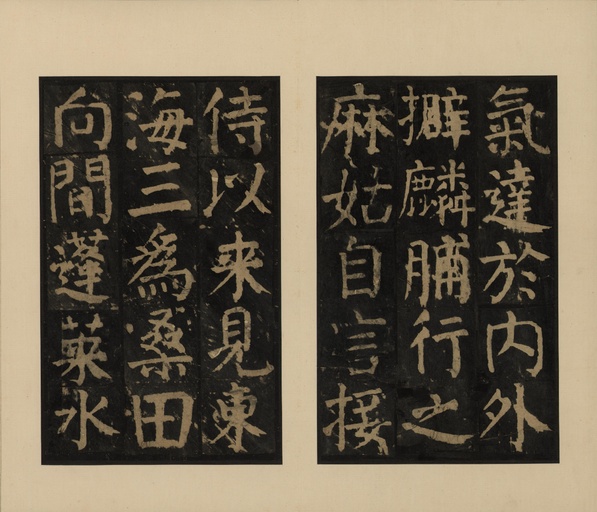 氣達於内外
擗麟脯行之
麻姑自言接
侍以来見東
海三為桑田
向間蓬莱水